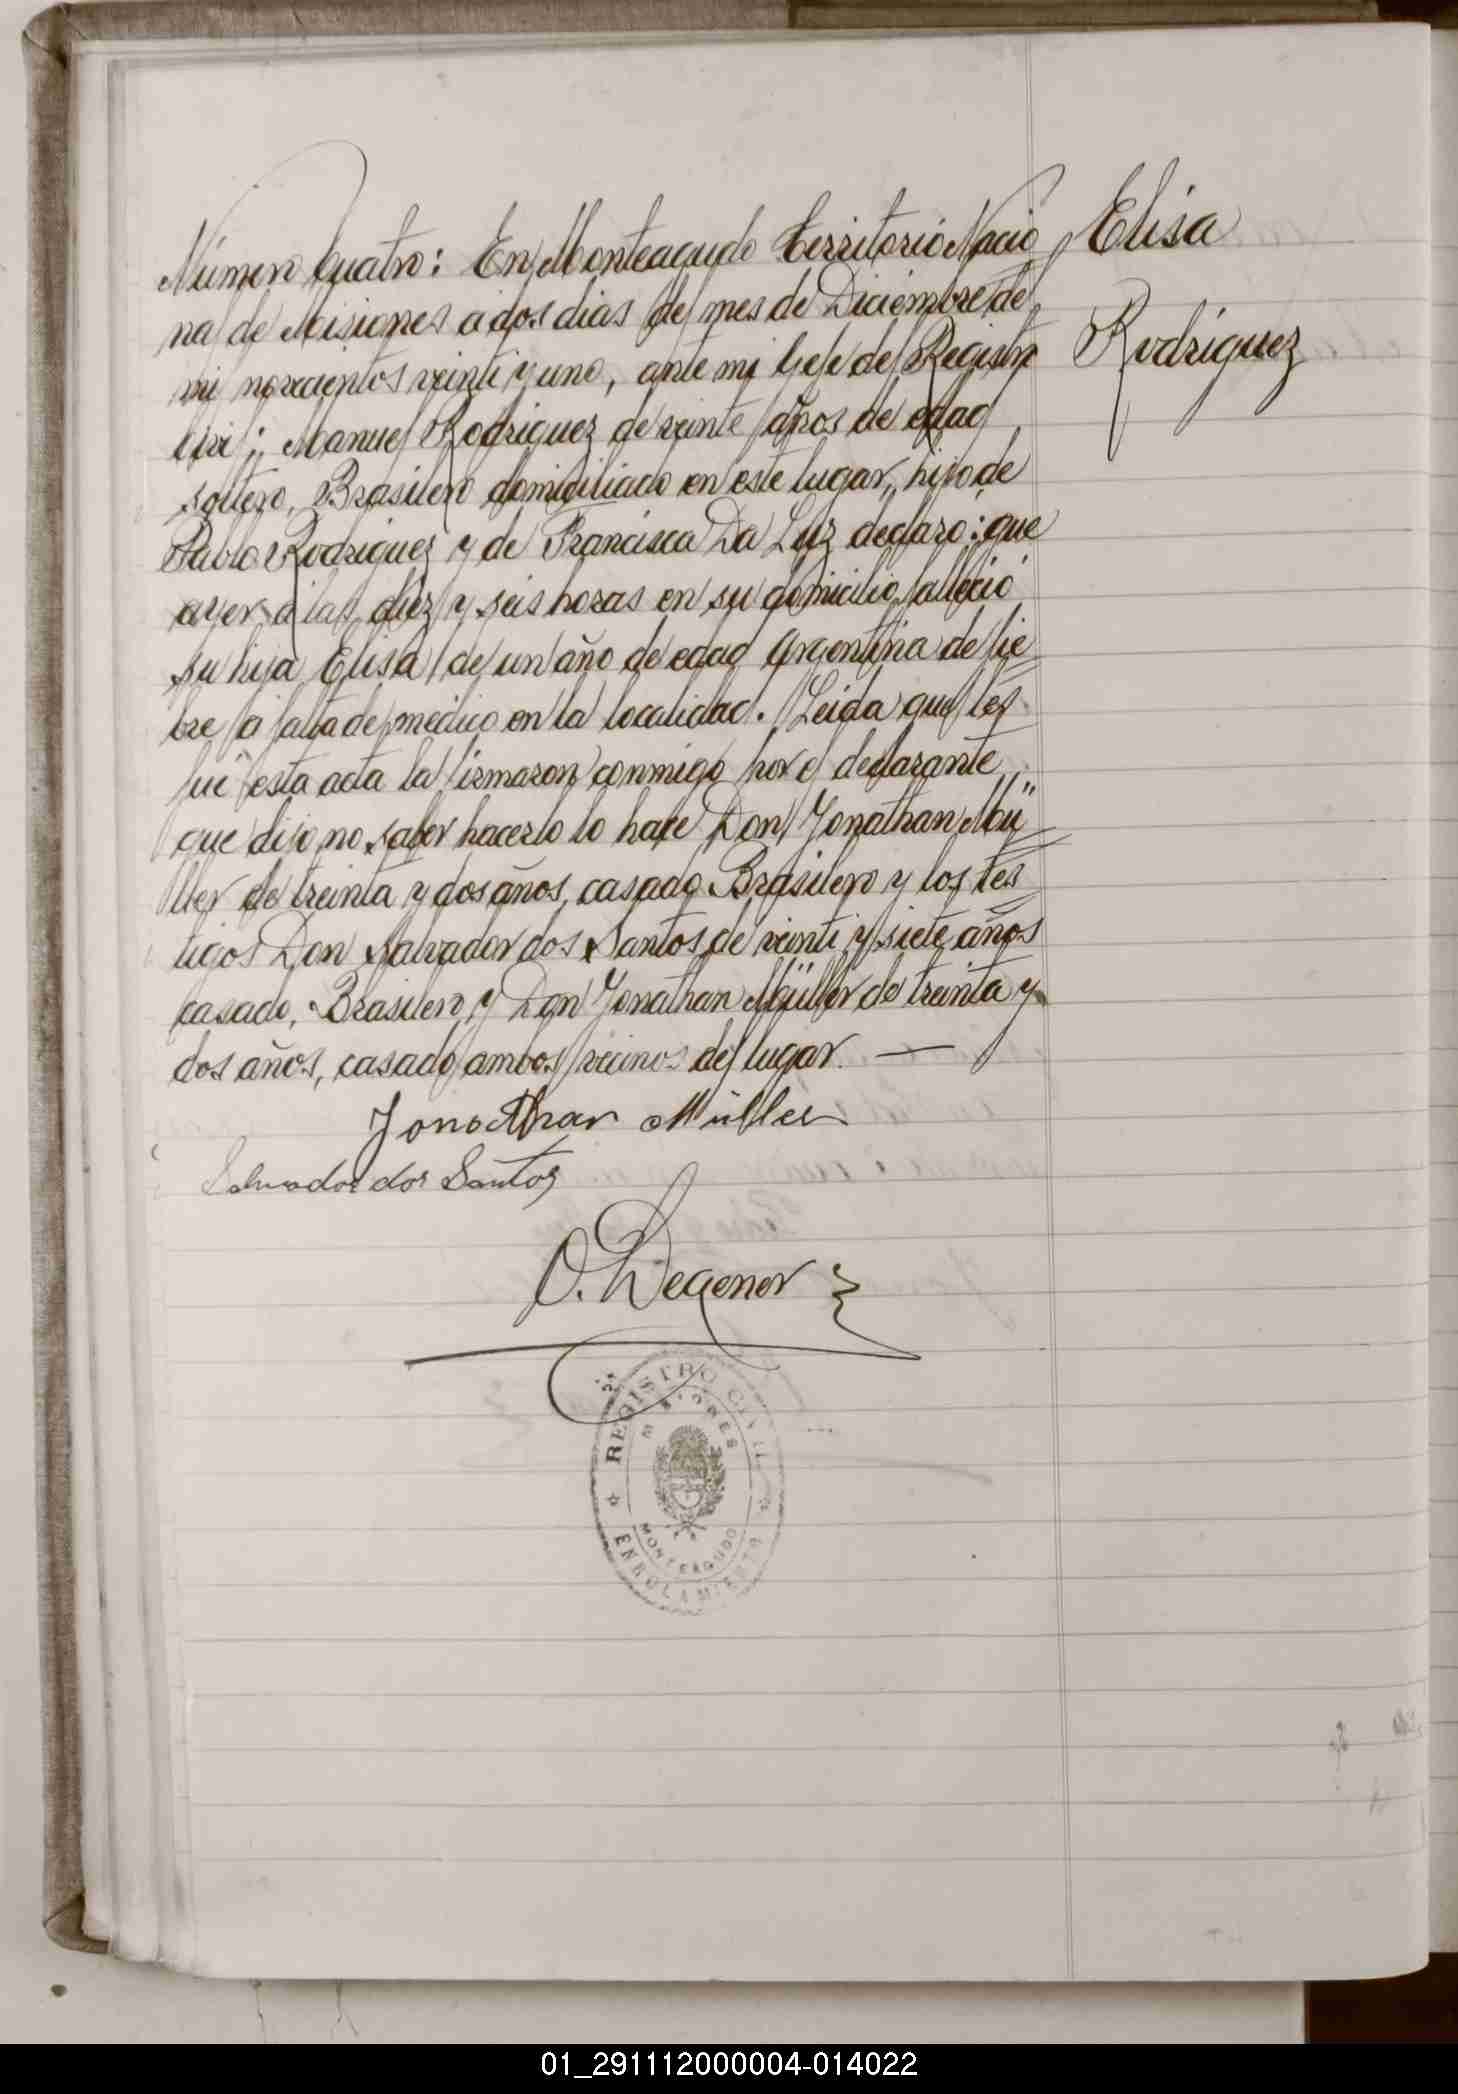 Número Cuatro: En Monteagudo Territorio Nacio
nal de Misiones a dos dias del mes de Diciembre de
mil novecientos veinti y uno, ante mi Gefe del Registro
Civil; Manuel Rodriguez de veinte años de edad
soltero, Brasilero domiciliado en este lugar, hijo de
Pablo Rodriguez y de Francisca Da Luz declaro: que
ayer a las diez y seis horas en su domicilio falleció
su hija Elisa de un año de edad Argentina de fie
bre a falta de médico en la localidad. Leida que les
fué esta acta la firmaron conmigo por el declarante
que dijo no saber hacerlo lo hace Don Jonathan Mü
ller de treinta y dos años, casado Brasilero y los tes
tigos Don Salvador dos Santos de veinti y siete años
casado, Brasilero y Don Jonathan Müller de treinta y
dos años, casado ambos vecinos del lugar. —
Jonathan Müller
Salvador dos Santos
O. Wegener
Elisa
Rodriguez
REGISTRO CIVIL
MISIONES
MONTEAGUDO
ENROLAMIENTO
01_291112000004-014022